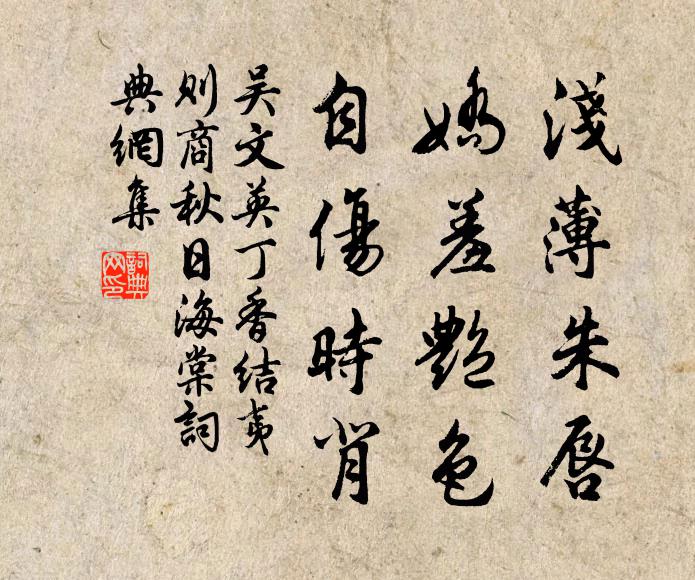 淺薄朱唇
嬌羞艷色
自傷時背
吴文英丁香結夷
则商秋日海棠詞
典網集
詞典
网印